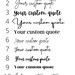 2 Your custom quote
3 Your custom quote
4 Your custom quote
5 Your custom quote
6 Your custom quote
7 Your custom quote
8 Your custom quote